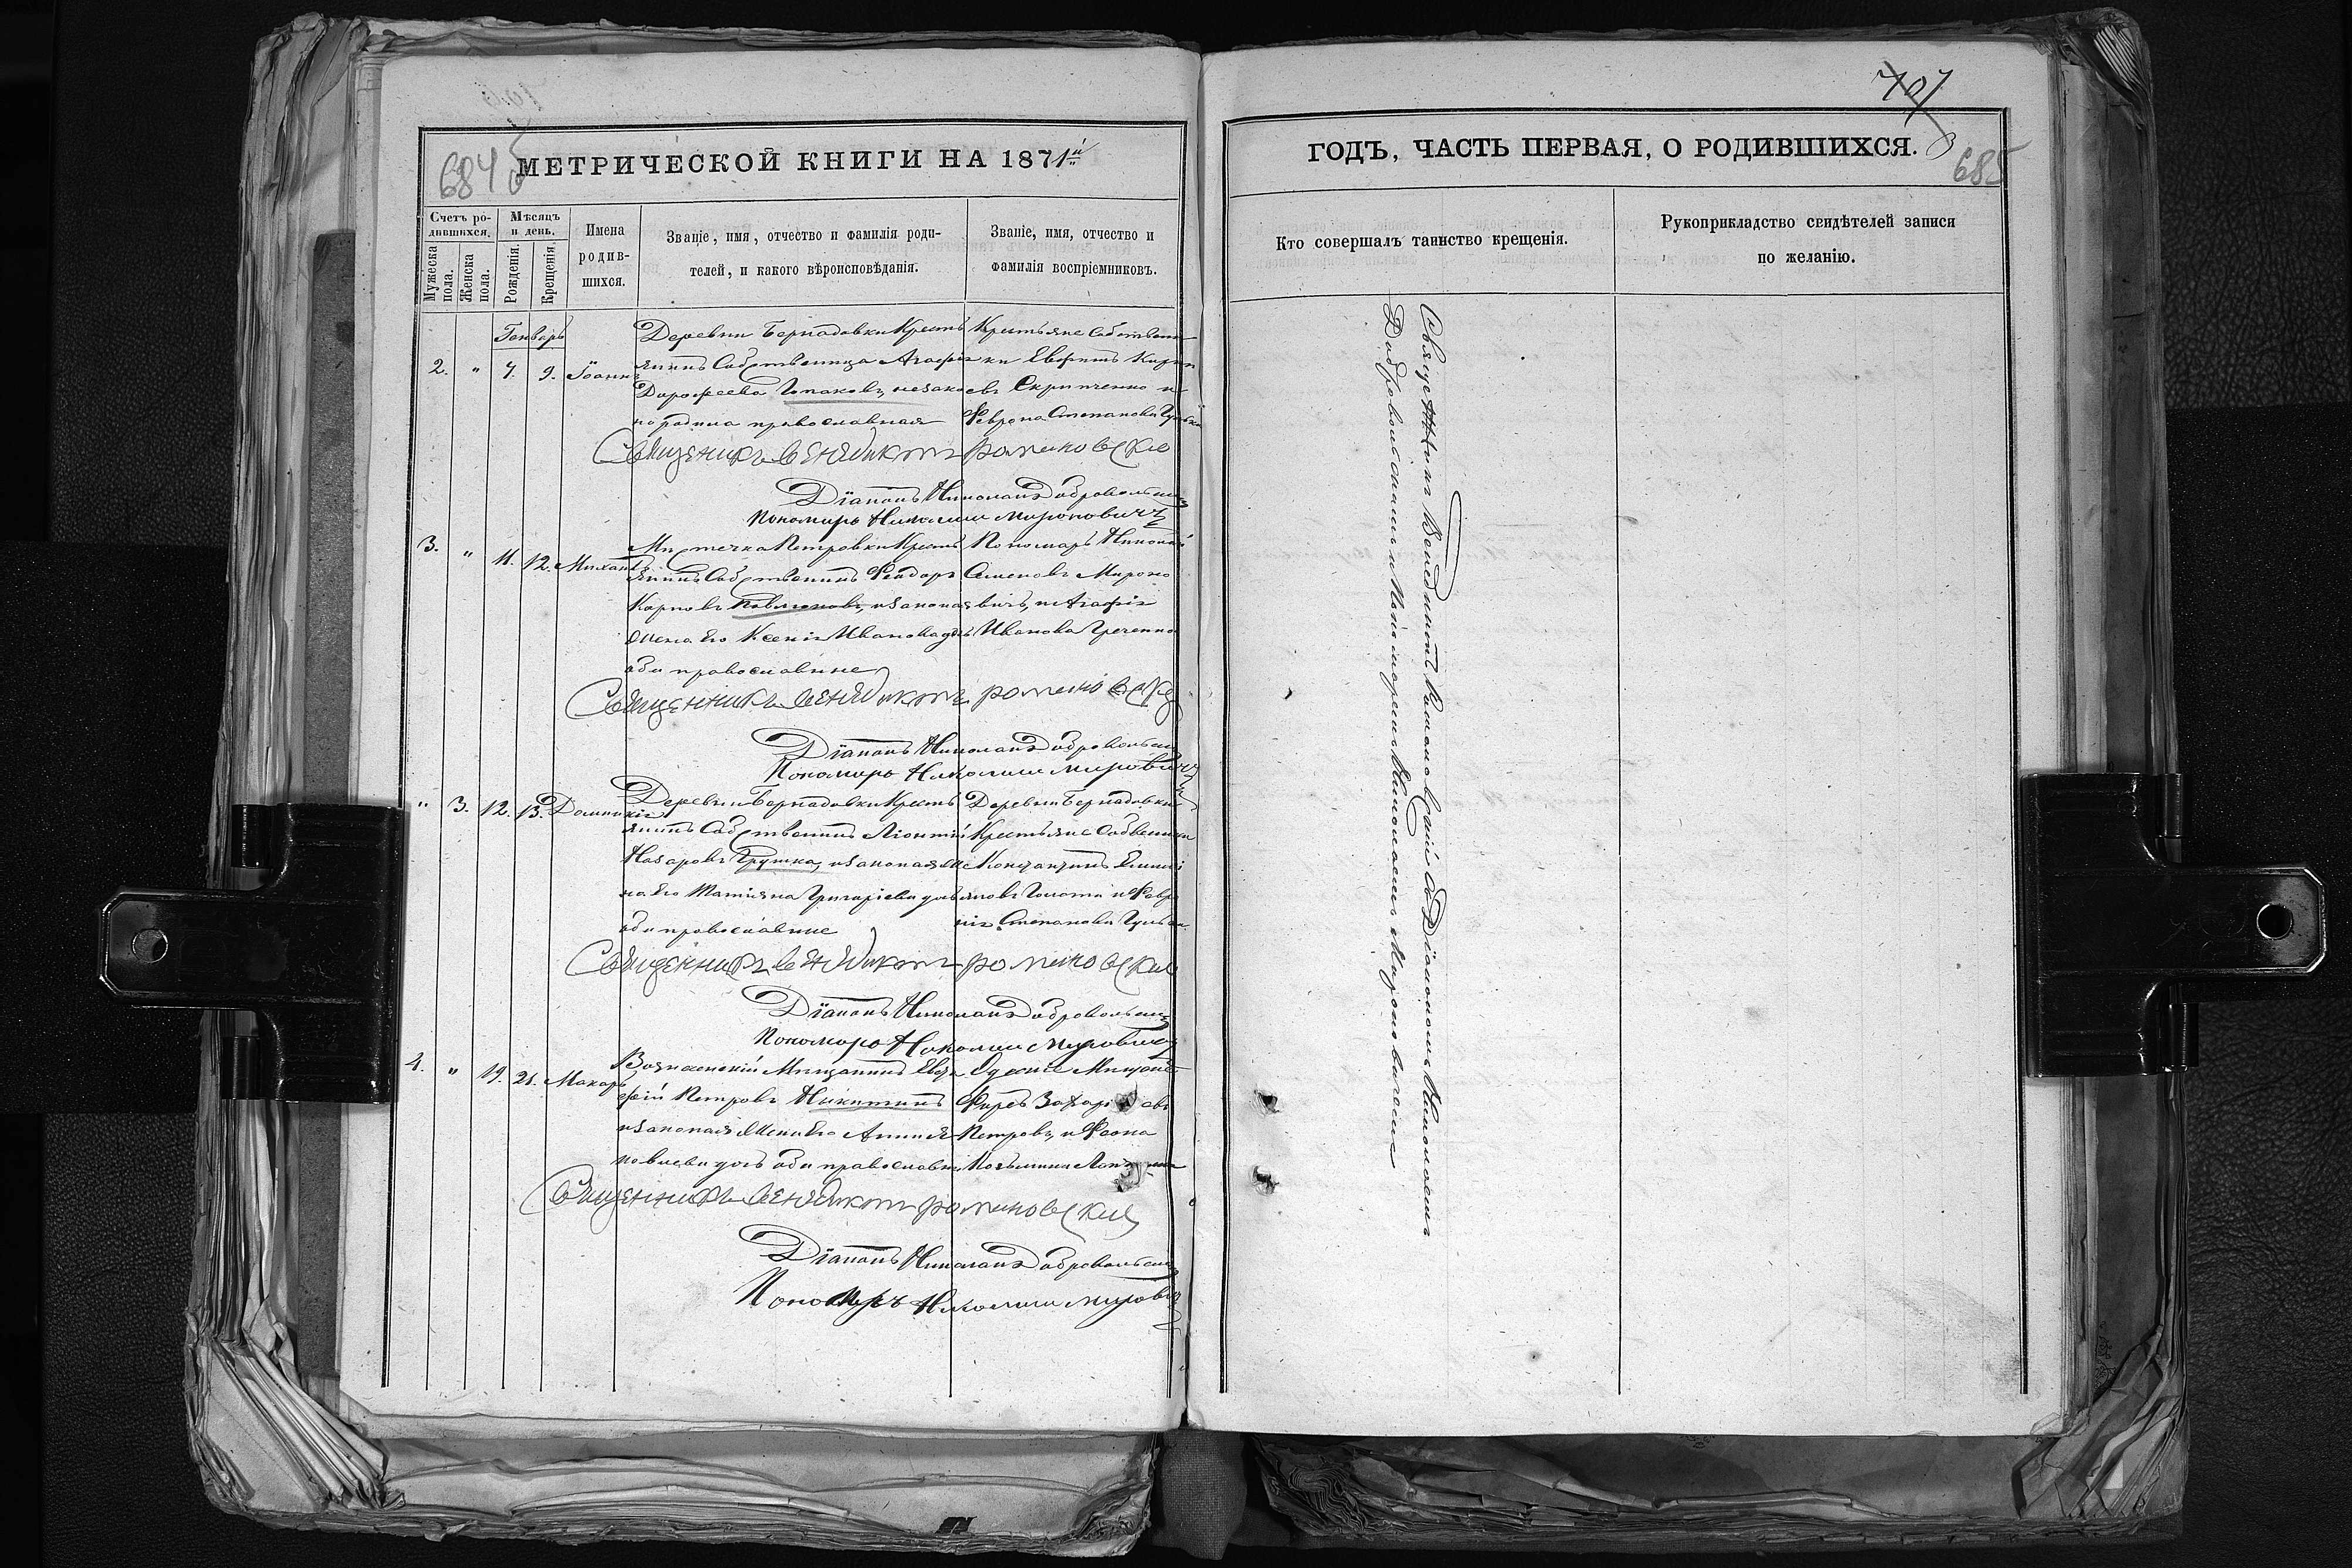 684 об
МЕТРИЧЕСКОЙ КНИГИ НА 1871й
Счетъ ро-
дившихся.
Мужеска
пола.
Женска
пола.
Мѣсяцъ
и день.
Рожденія.
Крещенія.
Имена
родив-
шихся.
Званіе, имя, отчество и фамилія роди-
телей, и какого вѣроисповѣданія.
Званіе, имя, отчество и
фамилія воспріемниковъ.
Генварь
2. " 7. 9. Іоаннъ
Деревни Бернадовки Кресть
янинъ Собственица Агафія
Дорофеева незако
но родила православная
Крестьяне Собствени
ки Евфимъ
евъ Скрипченко и
Феврона Степанова
Священникъ Венедиктъ Романовскій
Діаконъ Николай Добровольскій
Пономарь Николай Мироновичъ
3. " 11. 12. Михаилъ
Мѣстечка Петровки Кресть
янинъ Собственикъ Феодоръ
Карповъ Павлюковъ, и законая
жена его Ксенія Иванова
оба православные
Пономарь Николай
Семеновъ Мироно
вичъ, и Агафія
Иванова Греченко
Священникъ Венедиктъ Романовскій
Діаконъ Николай Добровольскій
Пономарь Николай Мировичъ
" 3. 12. 13. Домникія
Деревни Бернадовки Кресть
янинъ Собственикъ Леонтій
Назаровъ Грушка, и законая же
на его Татіяна Григоріева
оба православные
Деревни Бернадовки
Крестьяне
Константинъ
и Февро
нія Степанова
Священникъ Венедиктъ Романовскій
Діаконъ Николай Добровольскій
Пономарь Николай Мировичъ
4. " 19. 21. Макарь
Вознесенскій Мищанинъ Евдо
кій Петровъ Никитинъ
и законая жена его Анна Я
ковлева оба православные
Одескіе Мищане
Фирсъ Захаріевъ
Петровъ, и
Козьмина
Священникъ Венедиктъ Романовскій
Діаконъ Николай Добровольскій
Пономарь Николай Мировичъ
707
685
ГОДЪ, ЧАСТЬ ПЕРВАЯ, О РОДИВШИХСЯ.
Кто совершалъ таинство крещенія.
Рукоприкладство свидѣтелей записи
по желанію.
Священникъ Венедиктъ Романовскій съ Діакономъ Николаемъ
Добровольскимъ и Пономаремъ Николаемъ Мироновичемъ